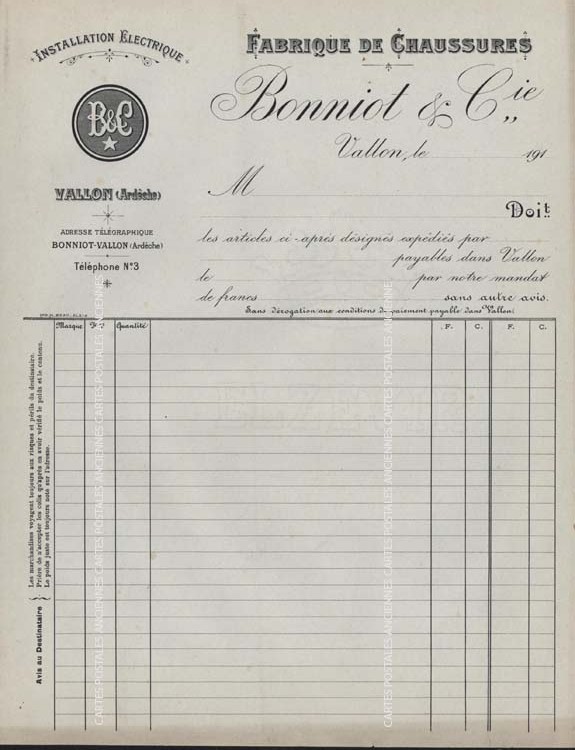 INSTALLATION ÉLECTRIQUE
FABRIQUE DE CHAUSSURES
B&C
Bonniot & Cie
Vallon, le 191
VALLON (Ardèche)
M
Doit
ADRESSE TÉLÉGRAPHIQUE
BONNIOT-VALLON (Ardèche)
Téléphone N°3
les articles ci-après désignés expédiés par
payables dans Vallon
le par notre mandat
de francs sans autre avis.
Sans dérogation aux conditions de paiement payable dans Vallon.
Marque Quantité F. C. F. C.
Avis au Destinataire
Les marchandises voyagent toujours aux risques et périls du destinataire.
Prière de n'accepter les colis qu'après en avoir vérifié le poids et le contenu.
Le poids juste est toujours noté sur l'adresse.
CARTES POSTALES ANCIENNES CARTES POSTALES ANCIENNES CARTES POSTALES ANCIENNES
CARTES POSTALES ANCIENNES CARTES POSTALES ANCIENNES CARTES POSTALES ANCIENNE